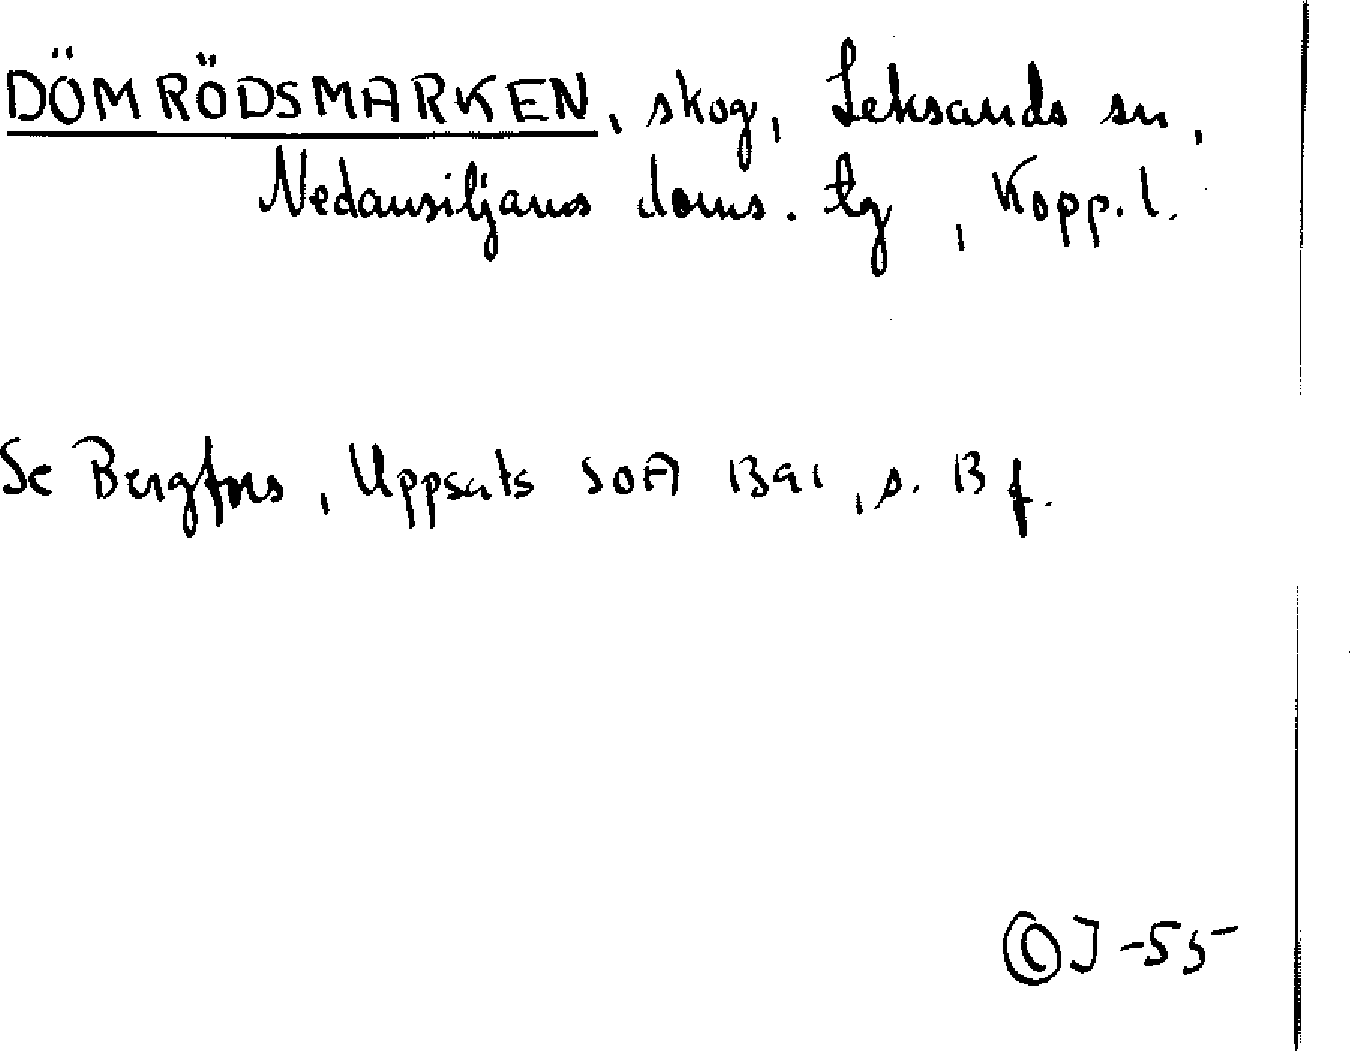 DÖMRÖDSMARKEN, skog, Leksands sn,
Nedansiljans doms. tg, Kopp. l.
Se Bergfors, Uppsats SOA 1341, s. 13 f.
OJ -55